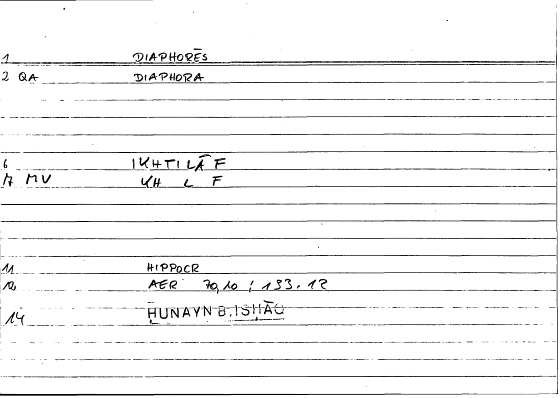 1 DIAPHORĒS
2 QA DIAPHORA
6 IKHTILĀF
7 MV KH L F
11 HIPPOCR
12 AER 70,10 ; 133.12
14 ḤUNAYN B. ISḤĀQ